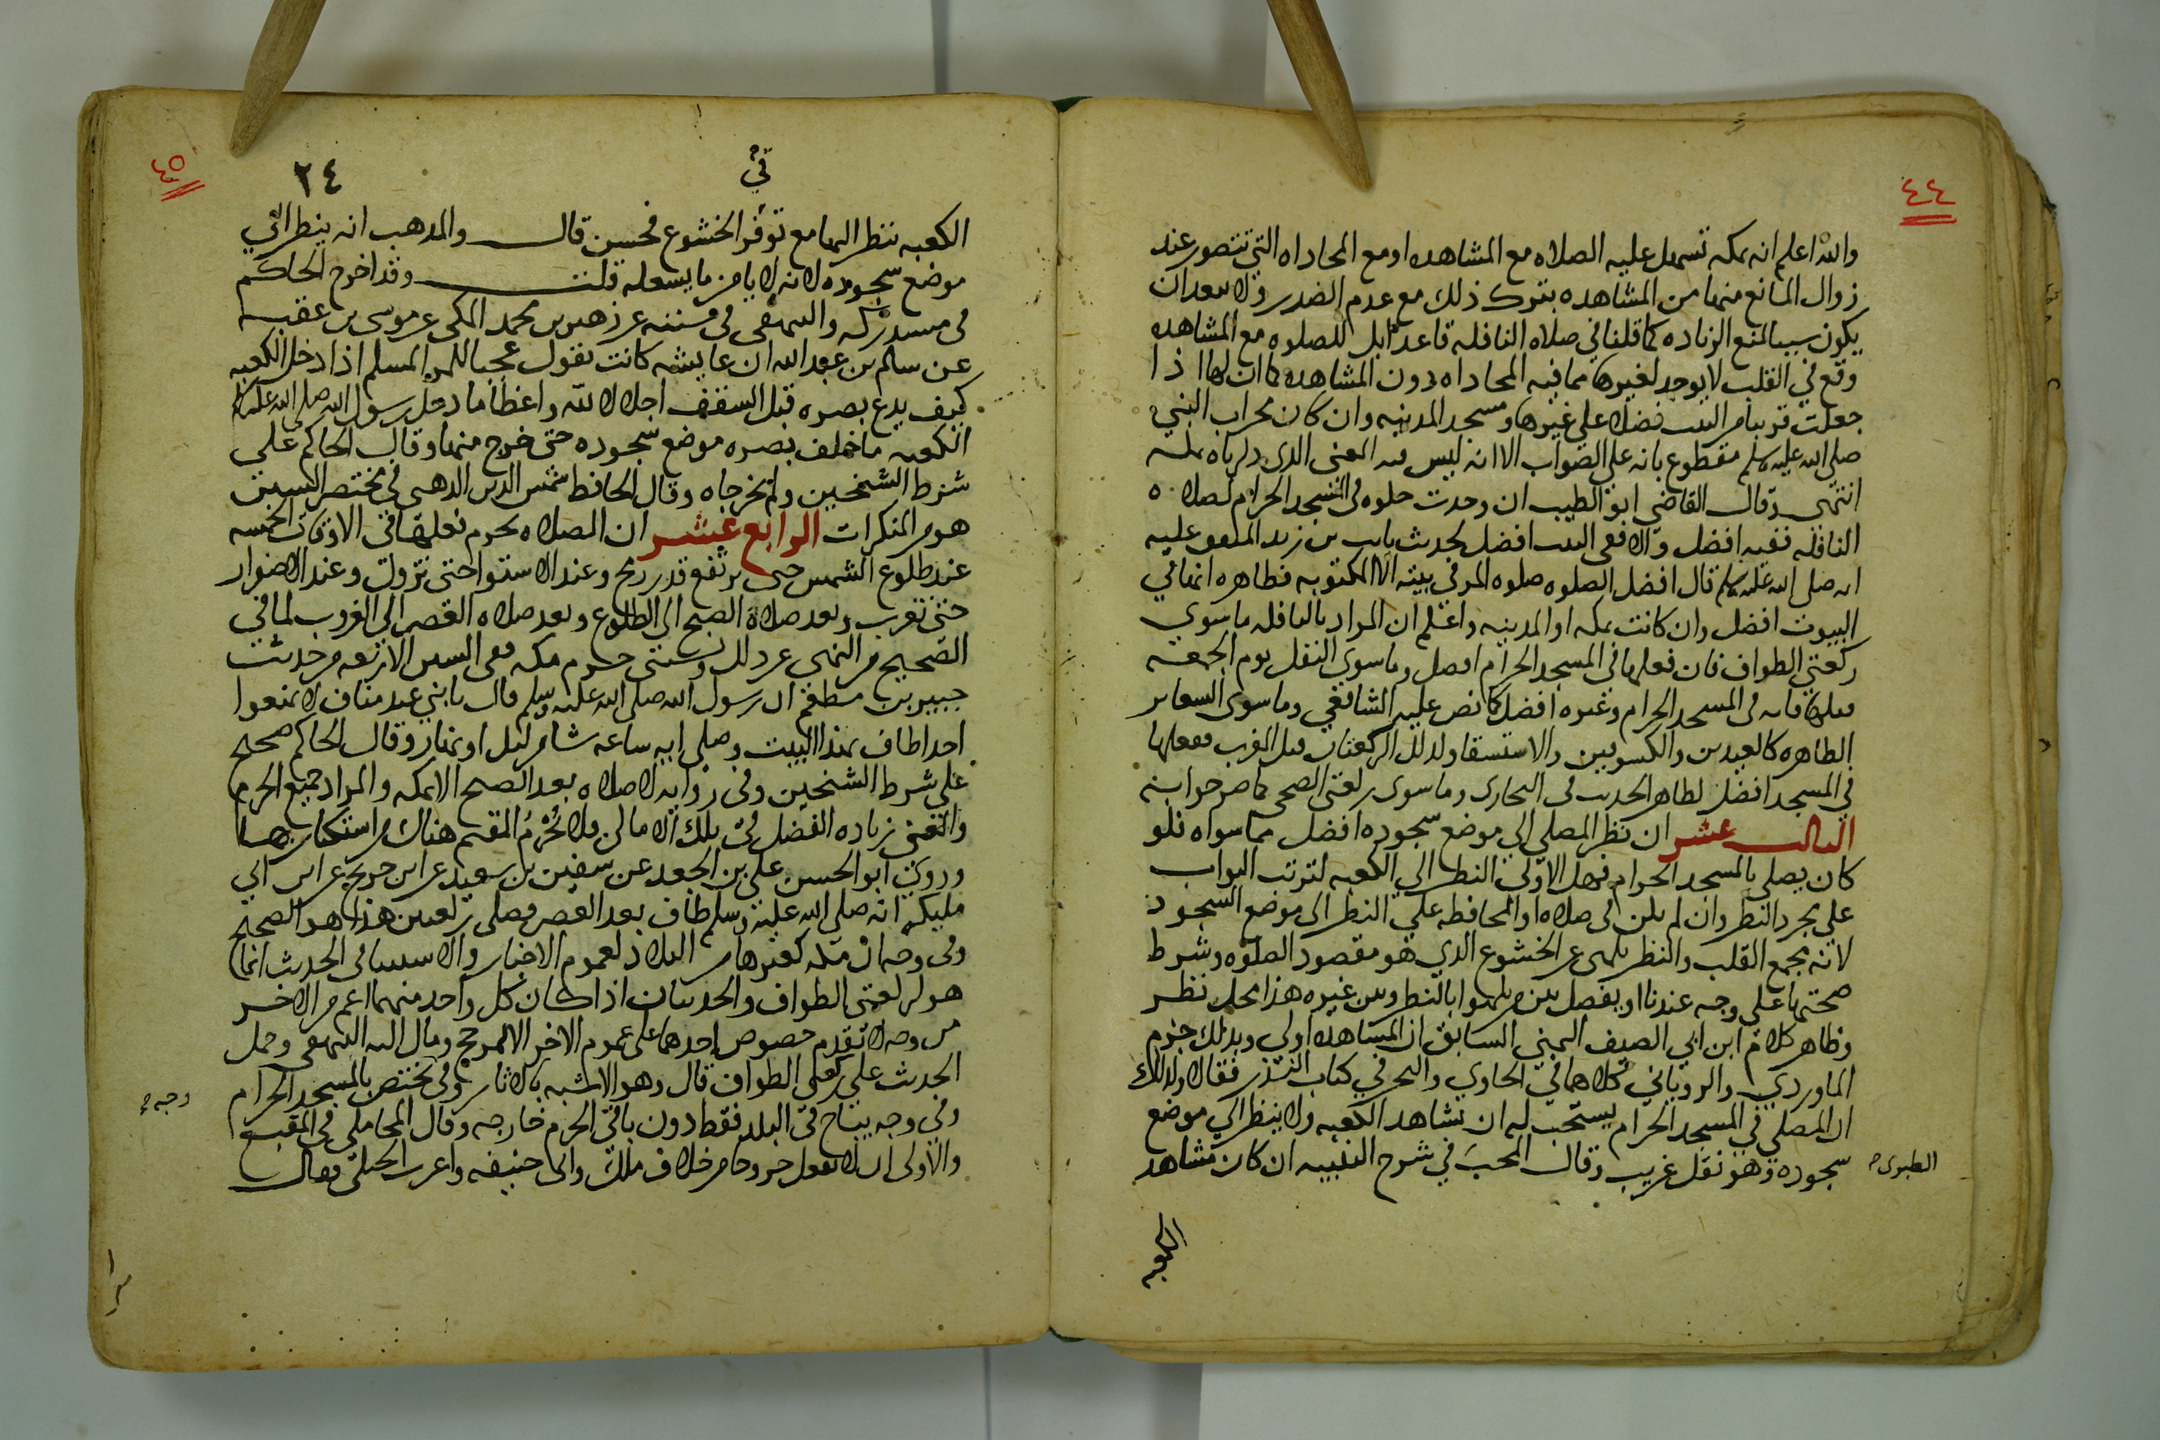 ٤٤
والله اعلم انه بمكه تسهل عليه الصلاه مع المشاهده او مع المحاداه التي تتصور عند
زوال المانع منها من المشاهده بترك ذلك مع عدم الضرر ولا يبعد ان
يكون سببا لمنع الزياده كما قلنا في صلاه النافله قاعدا بل للصلوه مع المشاهده
وقع في القلب لا يوجد لغيرها مما فيه المحاداه دون المشاهده كما ان لها اذا
جعلت قريبا من البيت فضلا على غيرها ومسجد المدينه وان كان محراب النبي
صلى الله عليه وسلم مقطوع بانه على الصواب الا انه ليس فيه المعنى الذي ذكرناه بمكه
انتهى وقال القاضي ابو الطيب ان وجدت خلوه في المسجد الحرام لصلاه
النافله ففيه افضل والا ففي البيت افضل لحديث زيد بن ثابت المتفق عليه
انه صلى الله عليه وسلم قال افضل الصلوه صلوه المر في بيته الا المكتوبه فظاهره انها في
البيوت افضل وان كانت بمكه او المدينه واعلم ان المراد بالنافله ما سوي
ركعتي الطواف فان فعلها في المسجد الحرام افضل وما سوى النفل يوم الجمعه
قبلها فانه في المسجد الحرام وغيره افضل كما نص عليه الشافعي وما سوى الشعاير
الظاهره كالعيدين والكسوفين والاستسقا وكذلك الركعتان قبل المغرب ففعلها
في المسجد افضل لظاهر الحديث في البخاري وما سوى ركعتي الضحى كما صرحوا به
الثالث عشر ان نظر المصلي الي موضع سجوده افضل مما سواه فلو
كان يصلي بالمسجد الحرام فهل الاولي النظر الي الكعبه لترتب الثواب
علي مجرد النظر وان لم يكن في صلاه او المحافظه علي النظر الى موضع السجود
لانه يجمع القلب والنظر يلهي عن الخشوع الذي هو مقصود الصلوه وشرط
صحتها على وجه عندنا او يفصل بين من يلهوا بالنظر وبين غيره هذا محل نظر
وظاهر كلام ابن ابي الصيف اليمني السابق ان المشاهده اولى وبذلك جزم
الماوردي والروياني كلاهما في الحاوي والبحر في كتاب النذر فقالا وكذلك
ان المصلي في المسجد الحرام يستحب له ان يشاهد الكعبه ولا ينظر الي موضع
سجوده وهو نقل غريب وقال المحب في شرح التنبيه ان كان يشاهد
الطبري
الكعبه
٤٥
٢٤
في
الكعبه ينظر اليها مع توفر الخشوع فحسن قال والمذهب انه ينظر الي
موضع سجوده لانه لا يامن ما يشغله قلت وقد اخرج الحاكم
في مستدركه والبيهقي في سننه عن زهير بن محمد المكي عن موسى بن عقبه
عن سالم بن عبد الله ان عايشه كانت تقول عجبا للمر المسلم اذا دخل الكعبه
كيف يدع بصره قبل السقف اجلالا لله واعظاما دخل رسول الله صلى الله عليه وسلم
الكعبه ما خلف بصره موضع سجوده حتى خرج منها وقال الحاكم على
شرط الشيخين ولم يخرجاه وقال الحافظ شمس الدين الذهبي في مختصر السنن
هو من المنكرات الرابع عشر ان الصلاه يحرم فعلها في الاوقات الخمسه
عند طلوع الشمس حتى ترتفع قدر رمح وعند الاستوا حتى تزول وعند الاصفرار
حتى تغرب وبعد صلاة الصبح الى الطلوع وبعد صلاه العصر الى الغروب لما في
الصحيح من النهي عن ذلك ويستثنى حرم مكه ففي السنن الاربعه من حديث
جبير بن مطعم ان رسول الله صلى الله عليه وسلم قال يا بني عبد مناف لا تمنعوا
احدا طاف بهذا البيت وصلى ايه ساعه شا من ليل او نهار وقال الحاكم صحيح
على شرط الشيخين وفي روايه لا صلاه بعد الصبح الا بمكه والمراد جميع الحرم
والمعنى زياده الفضل في تلك الاماكن فلا يحرم المقيم هناك من استكثارها
وروى ابو الحسن علي بن الجعد عن سفين بن سعيد عن ابن جريج عن ابن ابي
مليكه انه صلى الله عليه وسلم طاف بعد العصر فصلى ركعتين هذا هو الصحيح
وفي وجه ان مكه كغيرها من البلاد لعموم الاخبار والاستثنا في الحديث انما
هو لركعتي الطواف والحديثان اذا كان كل واحد منهما اعم من الاخر
من وجه لا تقدم خصوص احدهما على عموم الاخر الا بمرجح ومال اليه البيهقي وحمل
الحديث علي ركعتي الطواف قال وهو الاشبه بالاثار وفي تختص بالمسجد الحرام
وجه
وفي وجه يباح في البلد فقط دون باقي الحرم خارجه وقال المحاملي في المقنع
والاولى ان لا يفعل خروجا من خلاف ملك وابي حنيفه واعرب الحنبلي فقال